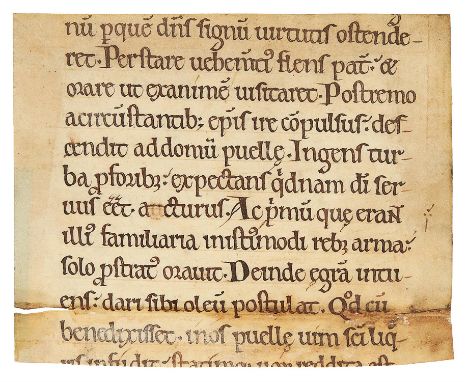 nū p quē dn̄s signū uirtutis ostende-
ret. Perstare uehem̄t flens pat᷑ & 
orare ut exanimē uisitaret. Postremo
a circūstantib; ep̄is ire cōpulsus: des-
cendit ad domū puellę. Ingens tur-
ba p̄ forib; expectans qͥdnam dī ser-
uus eēt acturus. Ac pͥmū que eran̄
illi familiaria in istimodi reb; arma:
solo ꝓstrat᷑ orauit. Deinde egrā intu-
ens: dari sibi oleū postulat. Qd̄ cū
benedixisset. in os puellę uim sc̄i liqͦ-
ris infudit: statimq; uox reddita est